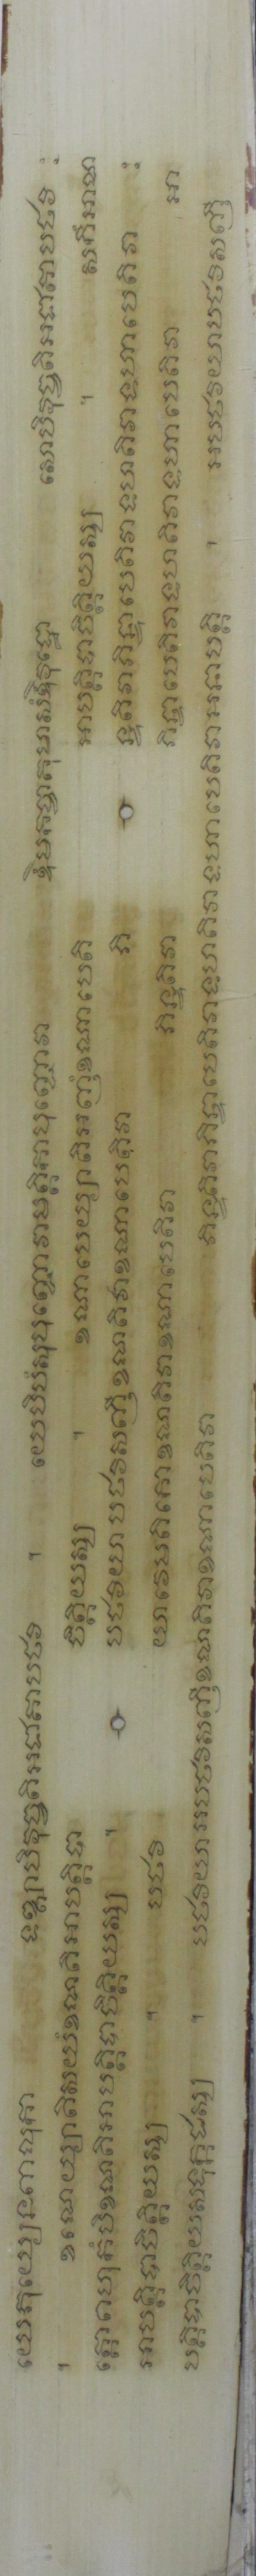 យេភុយ្យេនវាលុកា ទឌ្ឍាបិវុច្ចតិអជាតាបថវី ។ យេបិបំសុបុញ្ជោវាមត្តិកាបុញ្ជោវា សោបិវុច្ចតិអជាតាបថវី ៖
។ ខណេយ្យាតិសយំខណតិអាបត្តិបា ចិត្តិយស្ស ។ ខណាបេយ្យាតិអញ្ញំខណាបេតិ អាបត្តិបាចិត្តិយស្ស ។ សកឹអាណ
ត្តោពហុកំបិខណតិអាបត្តិបាចិត្តិយស្ស ។ បថវិយាបថវិសញ្ញីខណតិវាខណាបេតិវា ភិ ន្ទតិវាភិន្ទាបេតិវាទហតិវាទហាបេតិវា ៖
អាបត្តិបាចិត្តិយស្ស ។ បថវិ យាវេមតិកោខណតិវាខណាបេតិវា ភិន្ទតិវា ភិន្ទាបេតិវាទហតិវាទហាបេតិវា អា
បត្តិបាចិត្តិយសទុក្កដស្ស ។ បថវិយាអបថវិសញ្ញីខណតិវាខណាបេតិវា ភិន្ទតិវាភិន្ទាបេតិវាទហតិវាទហាបេតិវាអនាបត្តិ ។ អបថវិយាបថវិសញ្ញី